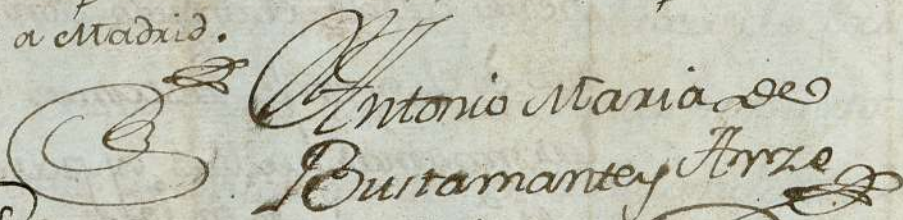 a Madrid.
Antonio Maria de
Bustamante y Arze